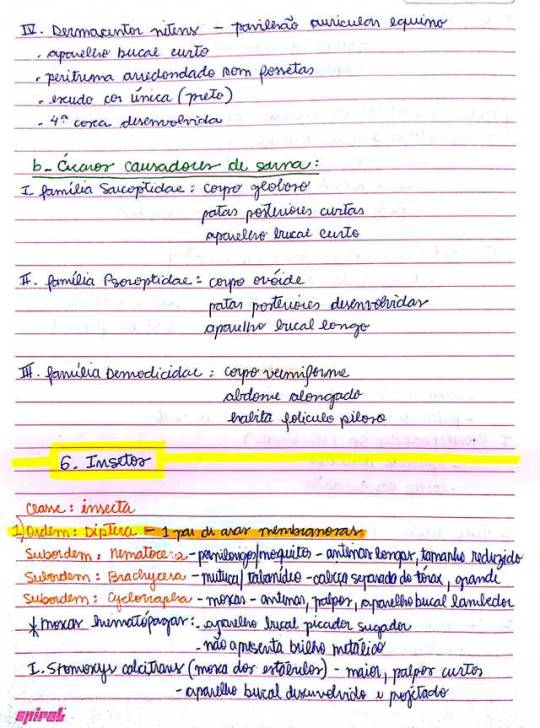 IV. Dermacentor nitens - pavilhão auricular equino
. aparelho bucal curto
. peritrema arredondado com fossetas
. escudo cor única (preto)
. 4ª coxa desenvolvida
b- Ácaros causadores de sarna:
I. família Sarcoptidae: corpo globoso
patas posteriores curtas
aparelho bucal curto
II. família Psoroptidae: corpo ovóide
patas posteriores desenvolvidas
aparelho bucal longo
III. família Demodicidae: corpo vermiforme
abdome alongado
habita folículo piloso
6. Insetos
Classe: insecta
1) Ordem: Diptera - 1 par de asas membranosas
Subordem: Nematocera - pernilongo/mosquito - antenas longas, tamanho reduzido
Subordem: Brachycera - mutuca/tabanídeo - cabeça separada do tórax, grande
Subordem: Cyclorrapha - moscas - antenas, palpos, aparelho bucal lambedor
* moscas hematófagas: . aparelho bucal picador sugador
- não apresenta brilho metálico
I. Stomoxys calcitrans (mosca dos estábulos) - maior, palpos curtos
- aparelho bucal desenvolvido e projetado
spiral